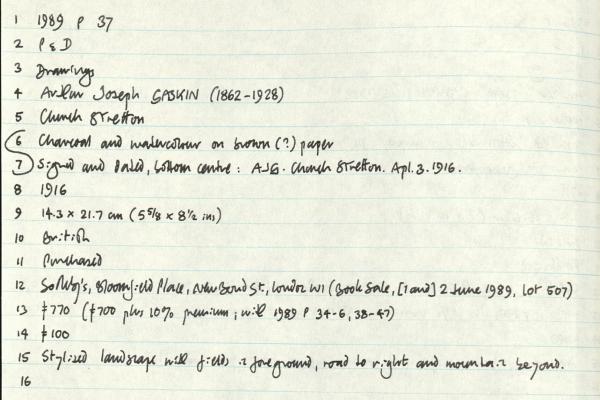 1 1989 P 37
2 P & D
3 Drawings
4 Arthur Joseph GASKIN (1862-1928)
5 Church Stretton
6 Charcoal and watercolour on brown (?) paper
7 Signed and dated, bottom centre: AJG. Church Stretton. Apl. 3. 1916.
8 1916
9 14.3 x 21.7 cm (5 5/8 x 8 1/2 ins)
10 British
11 Purchased
12 Sotheby's, Bloomfield Place, New Bond St., London W1 (Book Sale, [1 and] 2 June 1989, Lot 507)
13 £770 (£700 plus 10% premium; with 1989 P 34-6, 38-47)
14 £100
15 Stylized landscape with fields in foreground, road to right and mountain beyond.
16